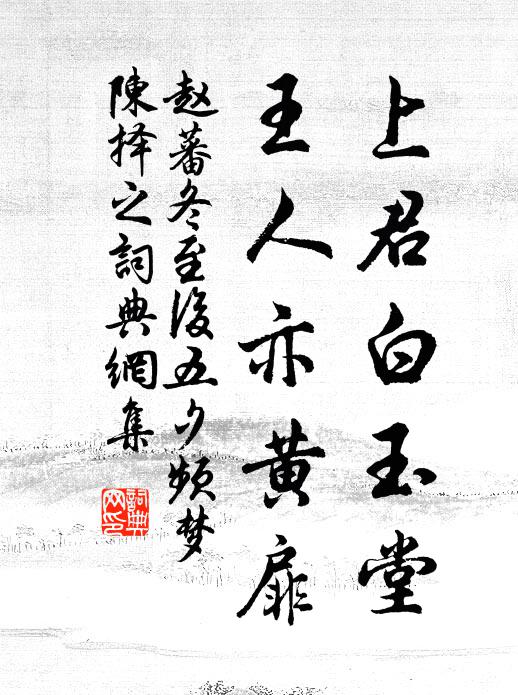 上君白玉堂
王人亦黄扉
赵蕃冬至後五夕频梦
陳择之詞典網集
詞典网印